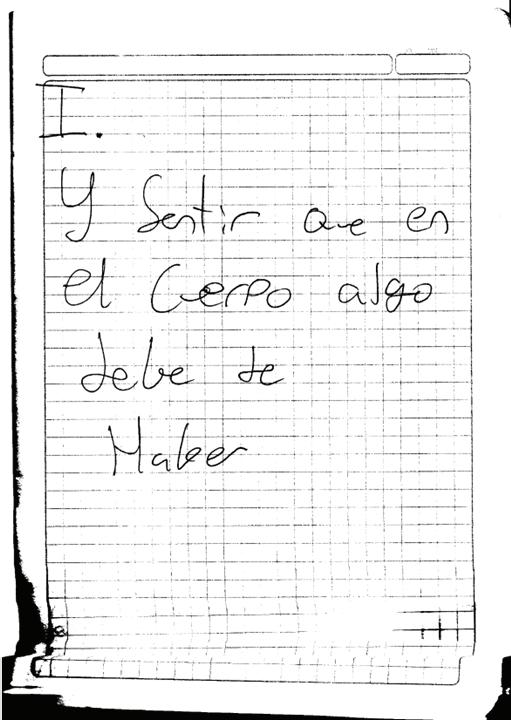 I.
Y Sentir que en
el Cuerpo algo
debe de
Haber